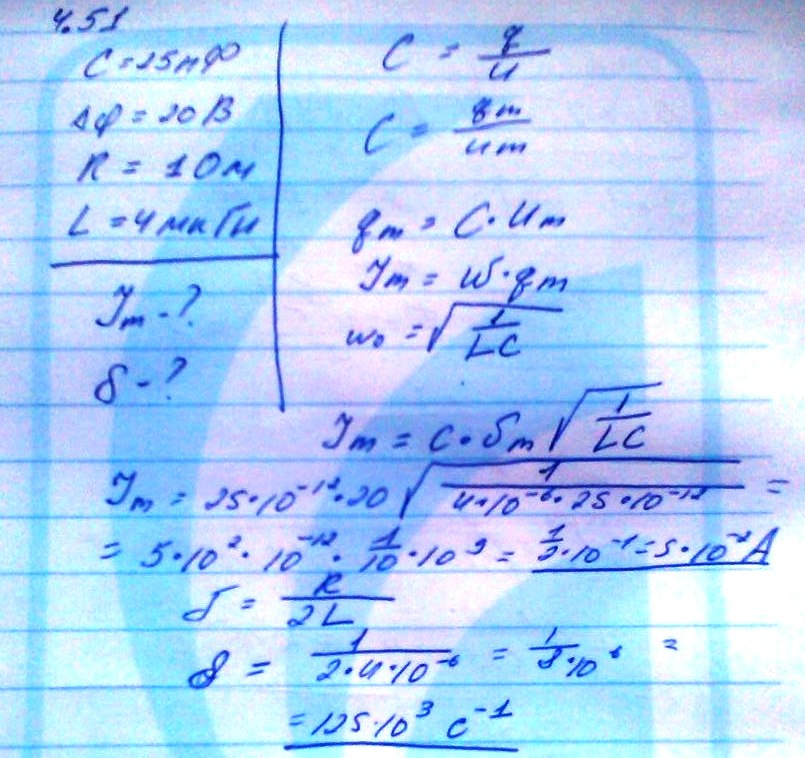 4.51
C = 25пФ
Δφ = 20 В
R = 1 Ом
L = 4 мкГн
Jm - ?
δ - ?
C = q/u
C = qm/um
qm = C·Um
Jm = ω·qm
ω₀ = √(1/LC)
Jm = C·Um √(1/LC)
Jm = 25·10⁻¹²·20 √(1/(4·10⁻⁶·25·10⁻¹²)) =
= 5·10²·10⁻¹²·1/10·10⁹ = 1/2·10⁻¹ = 5·10⁻²A
δ = R/2L
δ = 1/(2·4·10⁻⁶) = 1/8·10⁶ =
= 125·10³ c⁻¹